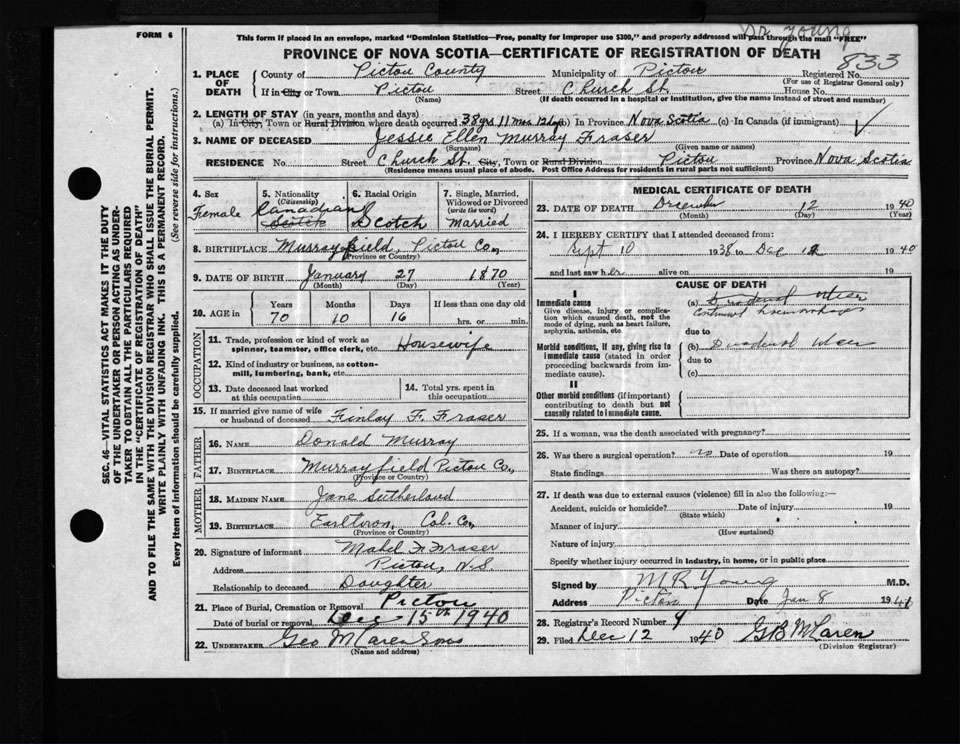 FORM 6
This form if placed in an envelope, marked "Dominion Statistics—Free, penalty for improper use $300," and properly addressed will pass through the mail "FREE"
Dr Young
PROVINCE OF NOVA SCOTIA—CERTIFICATE OF REGISTRATION OF DEATH
833
1. PLACE OF DEATH
County of Pictou County Municipality of Pictou Registered No.
(For use of Registrar General only)
If in City or Town Pictou Street Church St. House No.
(Name) (If death occurred in a hospital or institution, give the name instead of street and number)
2. LENGTH OF STAY (in years, months and days)
(a) In City, Town or Rural Division where death occurred 38 yrs 11 mos 12 days (b) In Province Nova Scotia (c) In Canada (if immigrant)
3. NAME OF DECEASED Jessie Ellen Murray Fraser
(Surname) (Given name or names)
RESIDENCE No. Street Church St. City, Town or Rural Division Pictou Province Nova Scotia
(Residence means usual place of abode. Post Office Address for residents in rural parts not sufficient)
4. Sex Female
5. Nationality (Citizenship) Canadian Scotch
6. Racial Origin Scotch
7. Single, Married, Widowed or Divorced (write the word) Married
8. BIRTHPLACE Murrayfield, Pictou Co.,
(Province or Country)
9. DATE OF BIRTH January 27 1870
(Month) (Day) (Year)
10. AGE in Years Months Days If less than one day old
70 10 16 hrs. or min.
OCCUPATION
11. Trade, profession or kind of work as spinner, teamster, office clerk, etc. Housewife
12. Kind of industry or business, as cotton-mill, lumbering, bank, etc.
13. Date deceased last worked at this occupation
14. Total yrs. spent in this occupation
15. If married give name of wife or husband of deceased Finlay F. Fraser
FATHER
16. NAME Donald Murray
17. BIRTHPLACE Murrayfield Pictou Co.,
(Province or Country)
MOTHER
18. MAIDEN NAME Jane Sutherland
19. BIRTHPLACE Earltown, Col. Co.,
(Province or Country)
20. Signature of informant Mabel F. Fraser
Address Pictou, N.S.
Relationship to deceased Daughter
21. Place of Burial, Cremation or Removal Pictou
Date of burial or removal Dec 15th 1940
22. UNDERTAKER Geo McLaren Sons
(Name and address)
MEDICAL CERTIFICATE OF DEATH
23. DATE OF DEATH December 12 1940
(Month) (Day) (Year)
24. I HEREBY CERTIFY that I attended deceased from:
Sept 10 1938 to Dec 12 1940
and last saw her alive on 19
CAUSE OF DEATH
I
Immediate cause
Give disease, injury or complication which caused death, not the mode of dying, such as heart failure, asphyxia, asthenia, etc
(a) Duodenal ulcer
Continued haemorrhages
due to
Morbid conditions, if any, giving rise to immediate cause (stated in order proceeding backwards from immediate cause).
(b) Duodenal ulcer
due to
(c)
II
Other morbid conditions (if important) contributing to death but not causally related to immediate cause.
25. If a woman, was the death associated with pregnancy?
26. Was there a surgical operation? no Date of operation 19
State findings Was there an autopsy?
27. If death was due to external causes (violence) fill in also the following:—
Accident, suicide or homicide? Date of injury 19
(State which)
Manner of injury
(How sustained)
Nature of injury
Specify whether injury occurred in industry, in home, or in public place
Signed by M R Young M.D.
Address Pictou Date Jan 8 1941
28. Registrar's Record Number 9
29. Filed Dec 12 1940 G B McLaren
(Division Registrar)
SEC. 46—VITAL STATISTICS ACT MAKES IT THE DUTY
OF THE UNDERTAKER OR PERSON ACTING AS UNDER-
TAKER TO OBTAIN ALL THE PARTICULARS REQUIRED
IN THE "CERTIFICATE OF REGISTRATION OF DEATH"
AND TO FILE THE SAME WITH THE DIVISION REGISTRAR WHO SHALL ISSUE THE BURIAL PERMIT.
WRITE PLAINLY WITH UNFADING INK. THIS IS A PERMANENT RECORD.
Every item of information should be carefully supplied. (See reverse side for instructions.)